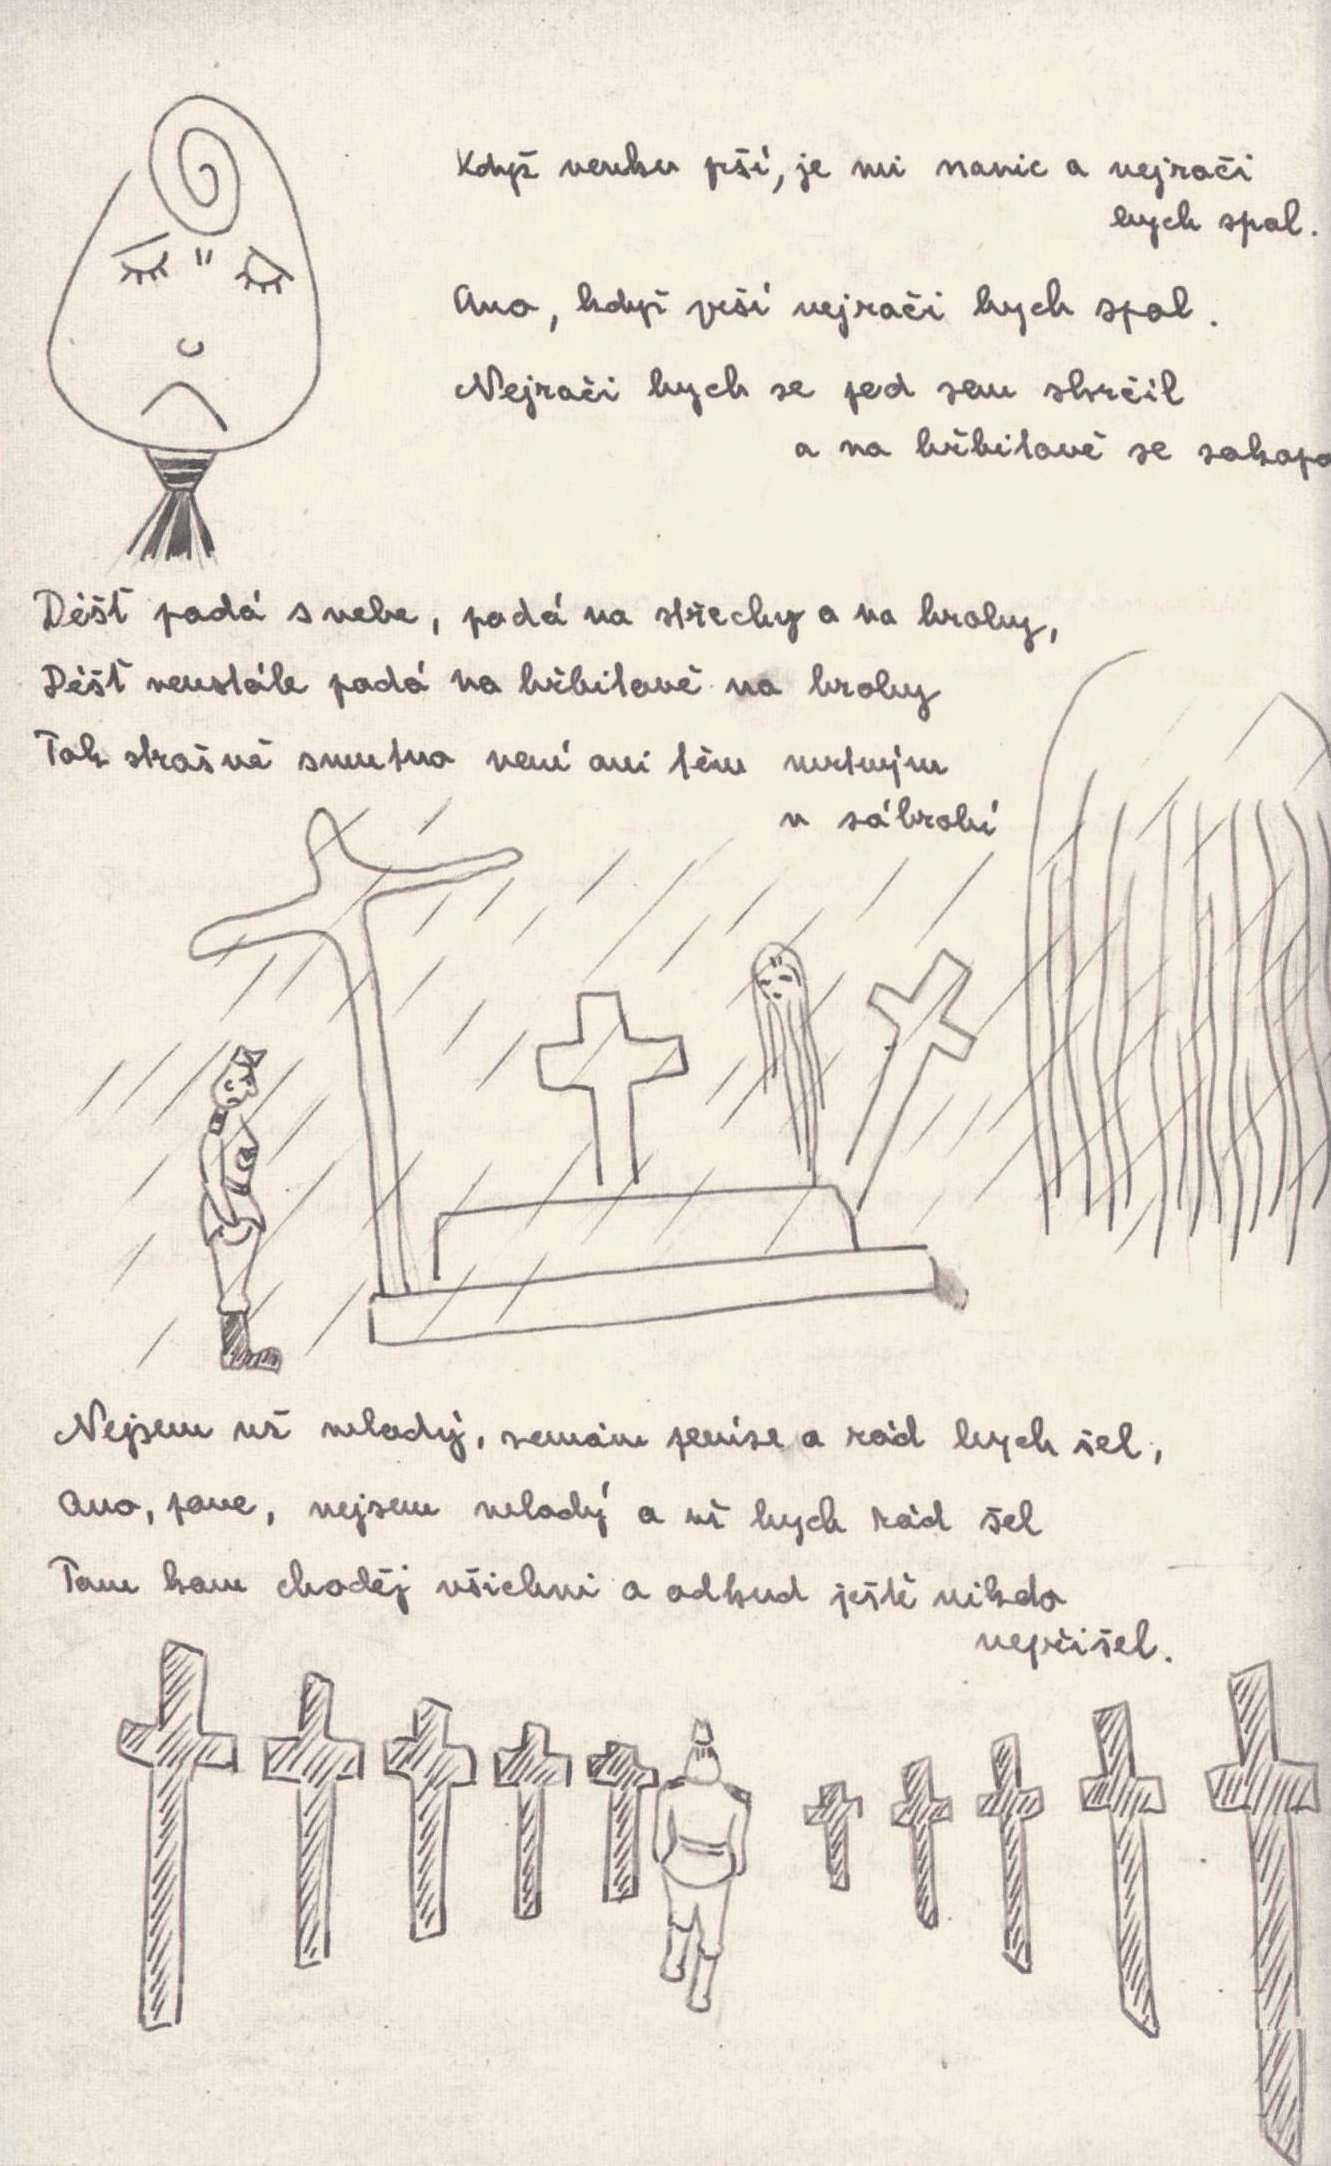 Když venku prší, je mi nanic a nejrači
bych spal.
Ano, když prší nejrači bych spal.
Nejrači bych se pod zem skrčil
a na hřbitově se zakopa
Déšť padá s nebe, padá na střechy a na hroby,
Déšť neustále padá na hřbitově na hroby
Tak strašně smutno není ani těm mrtvým
v záhrobí
Nejsem už mladý, nemám peníze a rád bych šel,
Ano, pane, nejsem mladý a už bych rád šel
Tam kam choděj všichni a odkud ještě nikdo
nepřišel.